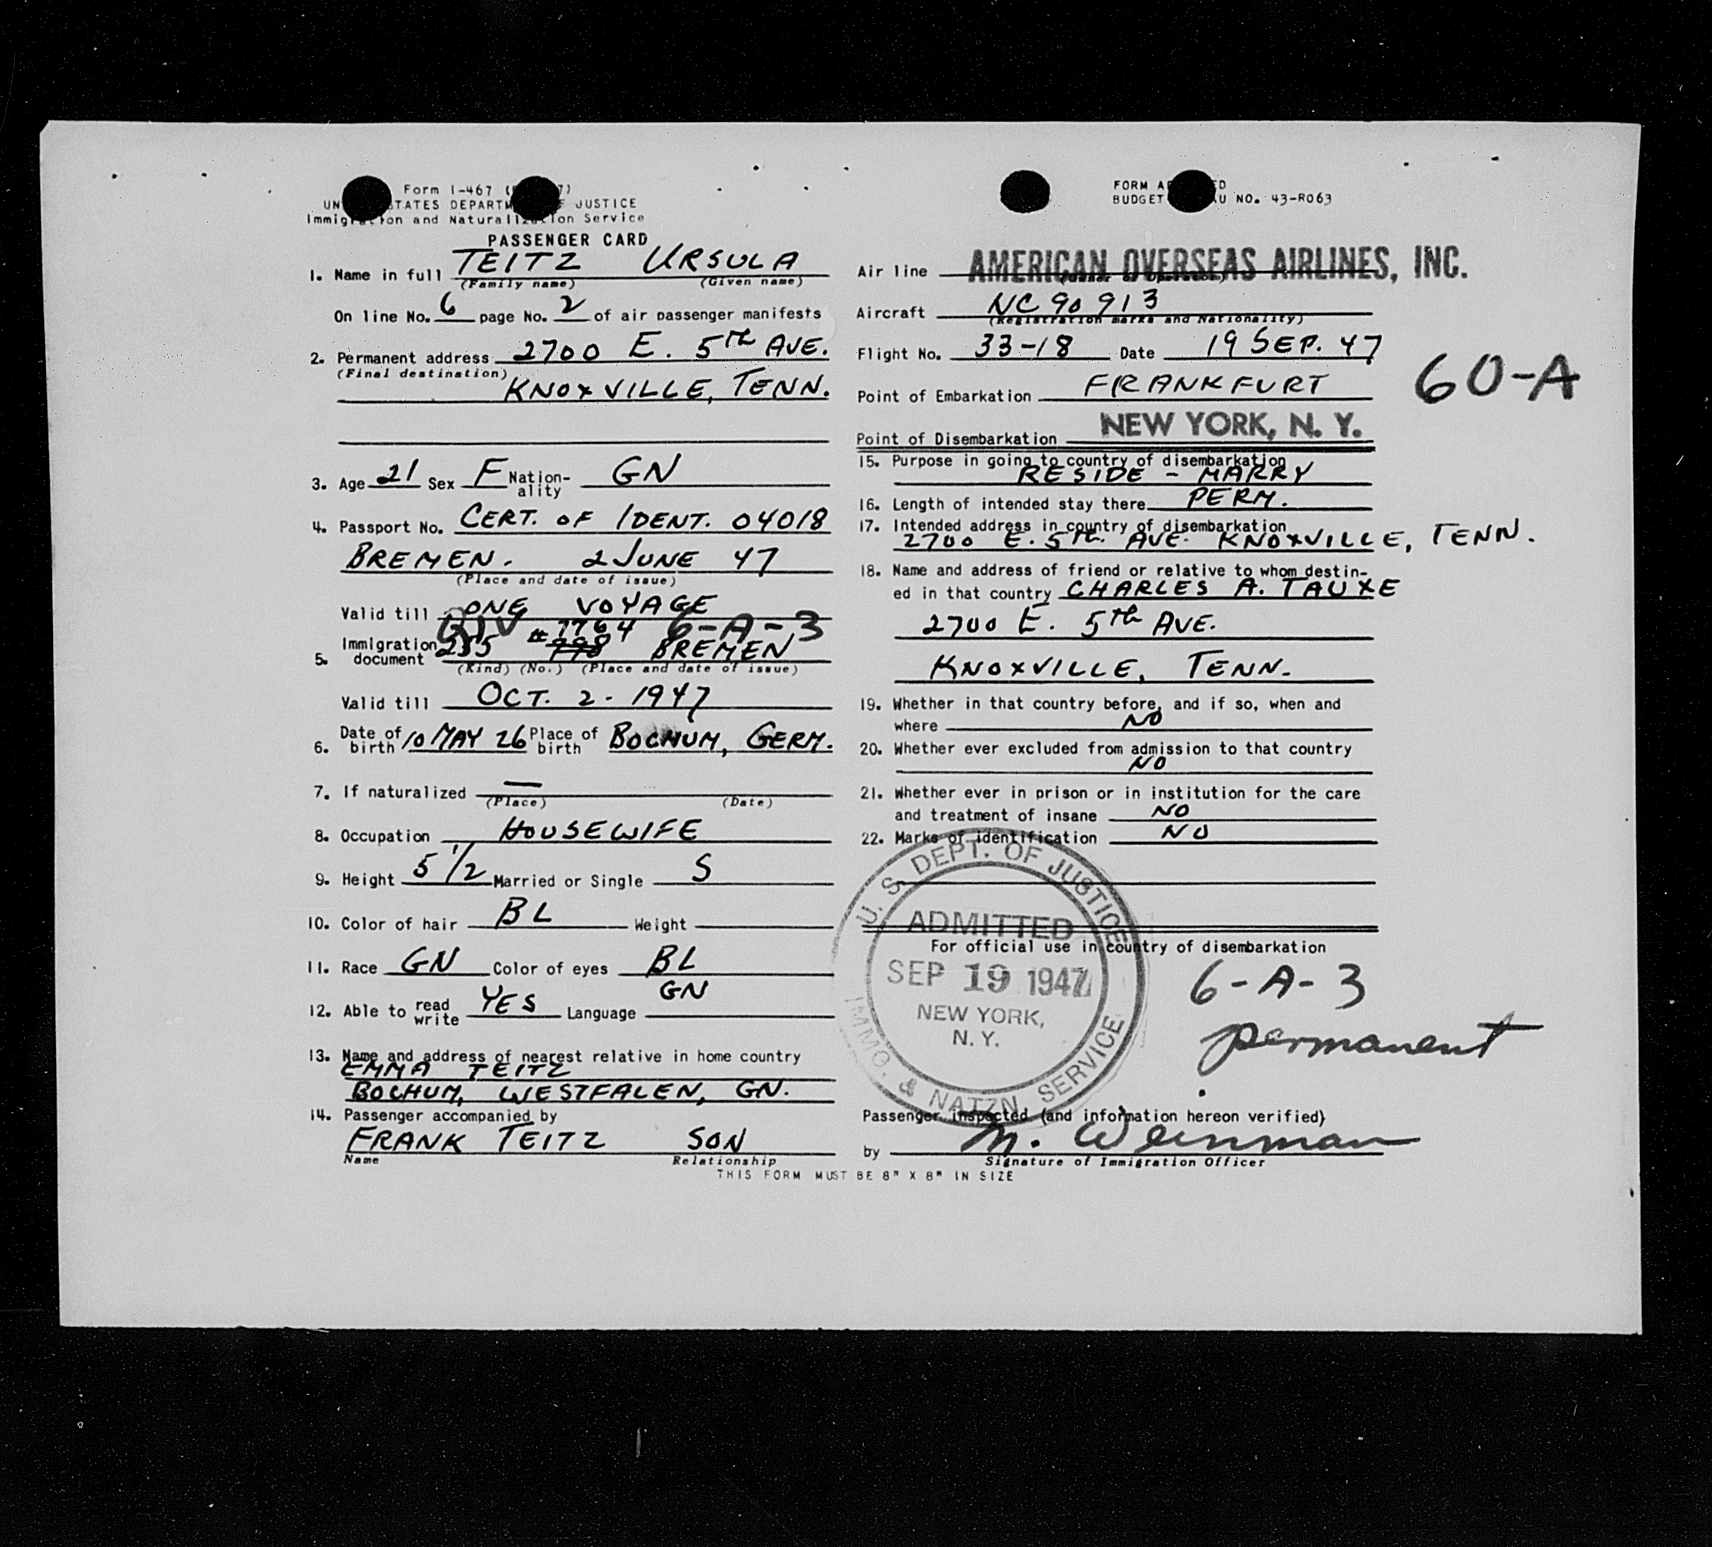 Form I-467 ( 7)
UN STATES DEPARTM F JUSTICE
Immigration and Naturalization Service
PASSENGER CARD
1. Name in full TEITZ URSULA
(Family name) (Given name)
On line No. 6 page No. 2 of air passenger manifests
2. Permanent address 2700 E. 5th AVE.
(Final destination) KNOXVILLE, TENN.
3. Age 21 Sex F Nation-ality GN
4. Passport No. CERT. OF IDENT. 04018
BREMEN. 2 JUNE 47
(Place and date of issue)
Valid till ONE VOYAGE
QIV #7764 6-A-3
5. Immigration document 235 798 BREMEN
(Kind) (No.) (Place and date of issue)
Valid till OCT. 2 - 1947
6. Date of birth 10 MAY 26 Place of birth BOCHUM, GERM.
7. If naturalized —
(Place) (Date)
8. Occupation HOUSEWIFE
9. Height 5 1/2 Married or Single S
10. Color of hair BL Weight
11. Race GN Color of eyes BL
12. Able to read write YES Language GN
13. Name and address of nearest relative in home country
EMMA TEITZ
BOCHUM, WESTFALEN, GN.
14. Passenger accompanied by
FRANK TEITZ SON
Name Relationship
THIS FORM MUST BE 8" X 8" IN SIZE
FORM A ED
BUDGET AU NO. 43-R063
Air line AMERICAN OVERSEAS AIRLINES, INC.
(Owner or Operator)
Aircraft NC 90 913
(Registration marks and Nationality)
Flight No. 33-18 Date 19 SEP. 47
60-A
Point of Embarkation FRANKFURT
Point of Disembarkation NEW YORK, N. Y.
15. Purpose in going to country of disembarkation
RESIDE - MARRY
16. Length of intended stay there PERM.
17. Intended address in country of disembarkation
2700 E. 5th AVE. KNOXVILLE, TENN.
18. Name and address of friend or relative to whom destin-
ed in that country CHARLES A. TAUXE
2700 E. 5th AVE.
KNOXVILLE, TENN.
19. Whether in that country before, and if so, when and
where NO
20. Whether ever excluded from admission to that country
NO
21. Whether ever in prison or in institution for the care
and treatment of insane NO
22. Marks of identification NO
U. S. DEPT. OF JUSTICE
ADMITTED
SEP 19 1947
NEW YORK,
N. Y.
IMMG. & NATZN. SERVICE
For official use in country of disembarkation
6-A-3
permanent
Passenger inspected (and information hereon verified)
by M. Weinman
Signature of Immigration Officer